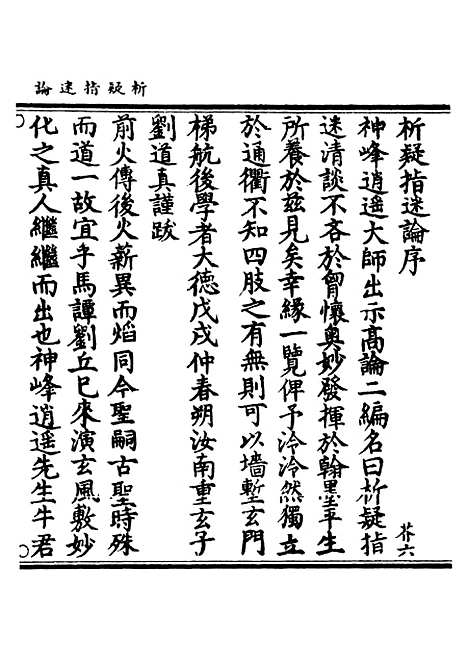 析疑指迷論
析疑指迷論序
芥六
神峰逍遥大師出示高論二編名曰析疑指
迷清談不吝於胷懷奥妙發揮於翰墨平生
所養於兹見矣幸緣一覽俾予泠泠然獨立
於通衢不知四肢之有無則可以墻塹玄門
梯航後學者大德戊戌仲春朔汝南重玄子
劉道真謹跋
前火傳後火薪異而焰同今聖嗣古聖時殊
而道一故宜乎馬譚劉丘巳來演玄風敷妙
化之真人繼繼而出也神峰逍遥先生牛君